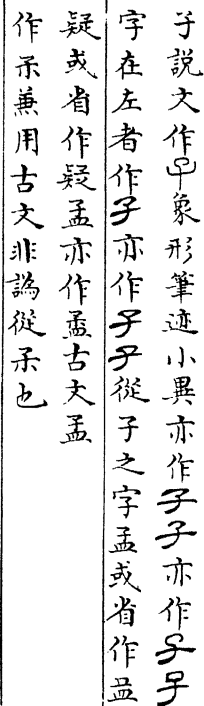 子說文作𢀇象形筆迹小異亦作子子亦作子子
字在左者作子亦作子子從子之字孟或省作𥁕
疑或省作疑孟亦作孟古文孟
作𤓽兼用古文非譌從𤓽也